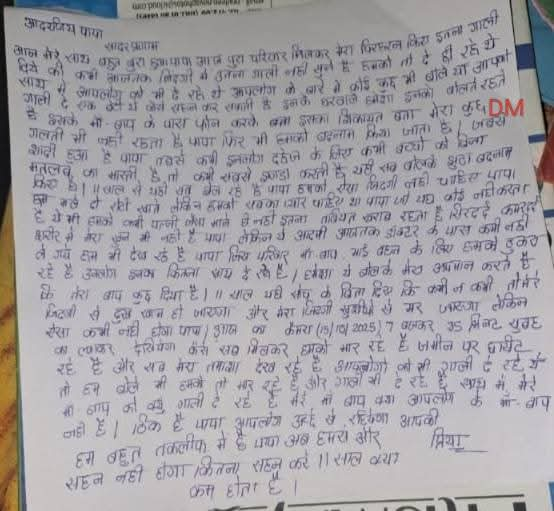 आदरणीय पापा
सादर प्रणाम
आज मेरे साथ बहुत बुरा हुआ पापा आज पुरा परिवार मिलकर मेरा किया इतना गाली
दिये की कभी आजतक जिंदगी में इतना गाली नहीं सुने है हमको तो दे ही रहे थे
साथ में आपलोग को भी दे रहे थे आपलोग के बारे में कोई कुछ भी बोले या आपको
गाली दे एक बेटी कैसे सहन कर सकती है इनके घरवाले हमेशा इनको बोलते रहते
है इसके माँ-बाप के पास फोन करके बता इसका शिकायत बता मेरा कुछ DM
गलती भी नहीं रहता है पापा फिर भी हमको बदनाम किया जाता है। जबसे
शादी हुआ है पापा तबसे कभी इनलोग दहेज के लिए कभी बच्चों को बिना
मतलब का मारती है तो कभी सबसे झगड़ा करती है यही सब बोलके झूठा बदनाम
किया है। 11 साल से यही सब झेल रहे है पापा हमको ऐसा जिंदगी नहीं चाहिए पापा
हम भले दो रोटी खाते लेकिन हमको सबका प्यार चाहिए था पापा जो यहाँ कोई नहीं करता
है ये भी हमको कभी पत्नी जैसा माने ही नहीं इतना तबियत खराब रहता है सिरदर्द कमरदर्द
शरीर में मेरा खून भी नहीं है पापा लेकिन ये आदमी आजतक डॉक्टर के पास कभी नहीं
ले गए हम भी देख रहे है पापा जिस परिवार माँ-बाप भाई बहन के लिए हमको ठुकरा
रहे है उनलोग इनका कितना साथ दे रहे है। हमेशा ये बोलके मेरा अपमान करते है
कि तेरा बाप कुछ दिया है। 11 साल यही सोच के बिता दिए कि कभी न कभी तो मेरे
जिंदगी से दुख खत्म हो जाएगा और मेरा जिंदगी खुशियों से भर जाएगा लेकिन
ऐसा कभी नहीं होगा पापा। आज का कैमरा (2025) 7 बजकर मिनट सुबह
का देखियेगा कैसे सब मिलकर हमको मार रहे है जमीन पर घसीट
रहे है और सब मेरा तमाशा देख रहे है आपलोगों को भी गाली दे रहे थे
तो हम बोले भी हमको तो मार रहे है और गाली भी दे रहे है साथ में मेरे
माँ-बाप को क्यूं गाली दे रहे है मेरे माँ बाप क्या आपलोग के माँ-बाप
नहीं है। ठीक है पापा आपलोग रहियेगा आपकी
हम बहुत तकलीफ में है पापा अब हमसे और प्रिया
सहन नहीं होगा कितना सहन करे 11 साल क्या
कम होता है।